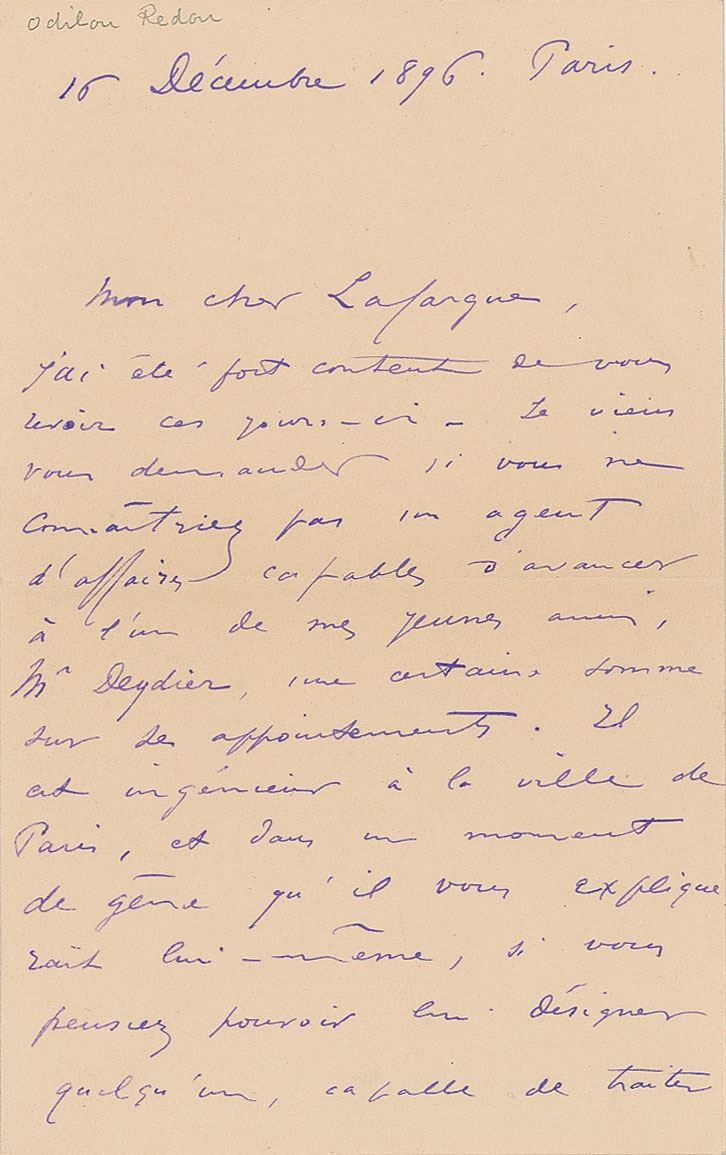 Odilon Redon
16 Décembre 1896. Paris.
Mon cher Lafargue,
J'ai été fort content de vous
revoir ces jours-ci - Je viens
vous demander si vous ne
connaîtriez pas un agent
d'affaires capables d'avancer
à l'un de mes jeunes amis,
Mr Deydier, une certaine somme
sur ses appointements. Il
est ingénieur à la ville de
Paris, et dans un moment
de gêne qu'il vous explique
rait lui-même, si vous
pensiez pouvoir lui désigner
quelqu'un, capable de traiter